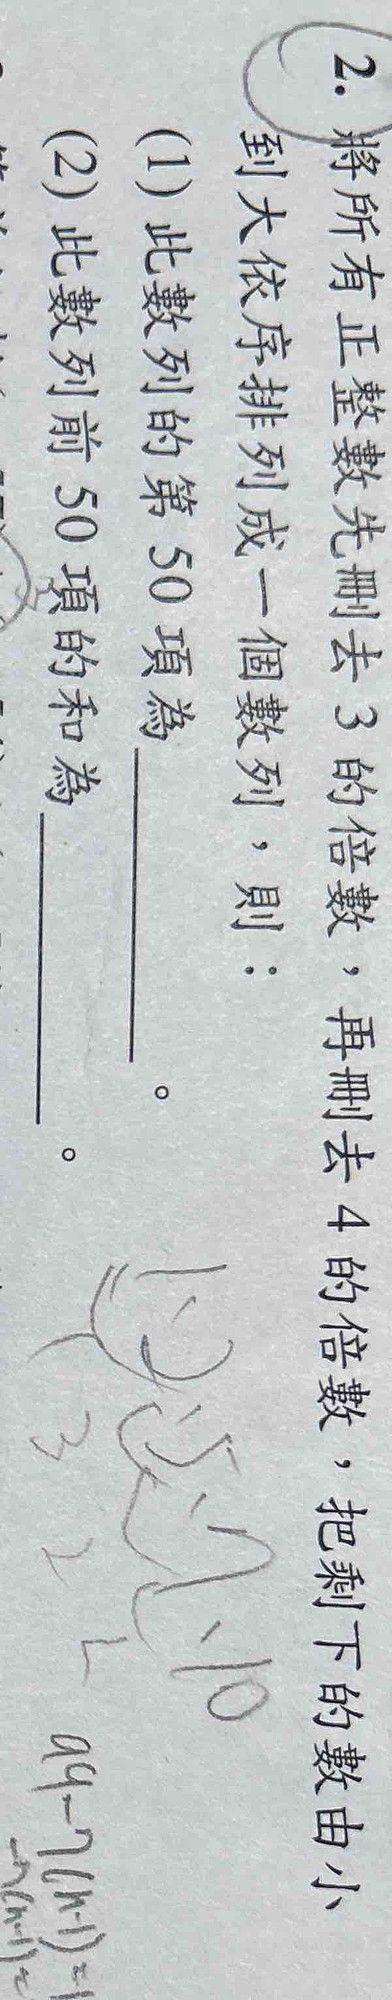 2. 將所有正整數先刪去 3 的倍數，再刪去 4 的倍數，把剩下的數由小
到大依序排列成一個數列，則：
(1) 此數列的第 50 項為＿＿＿＿＿＿。
(2) 此數列前 50 項的和為＿＿＿＿＿＿。
1、2、5、7、10
3 2
99-7(n-1)=1
-7(n-1)=